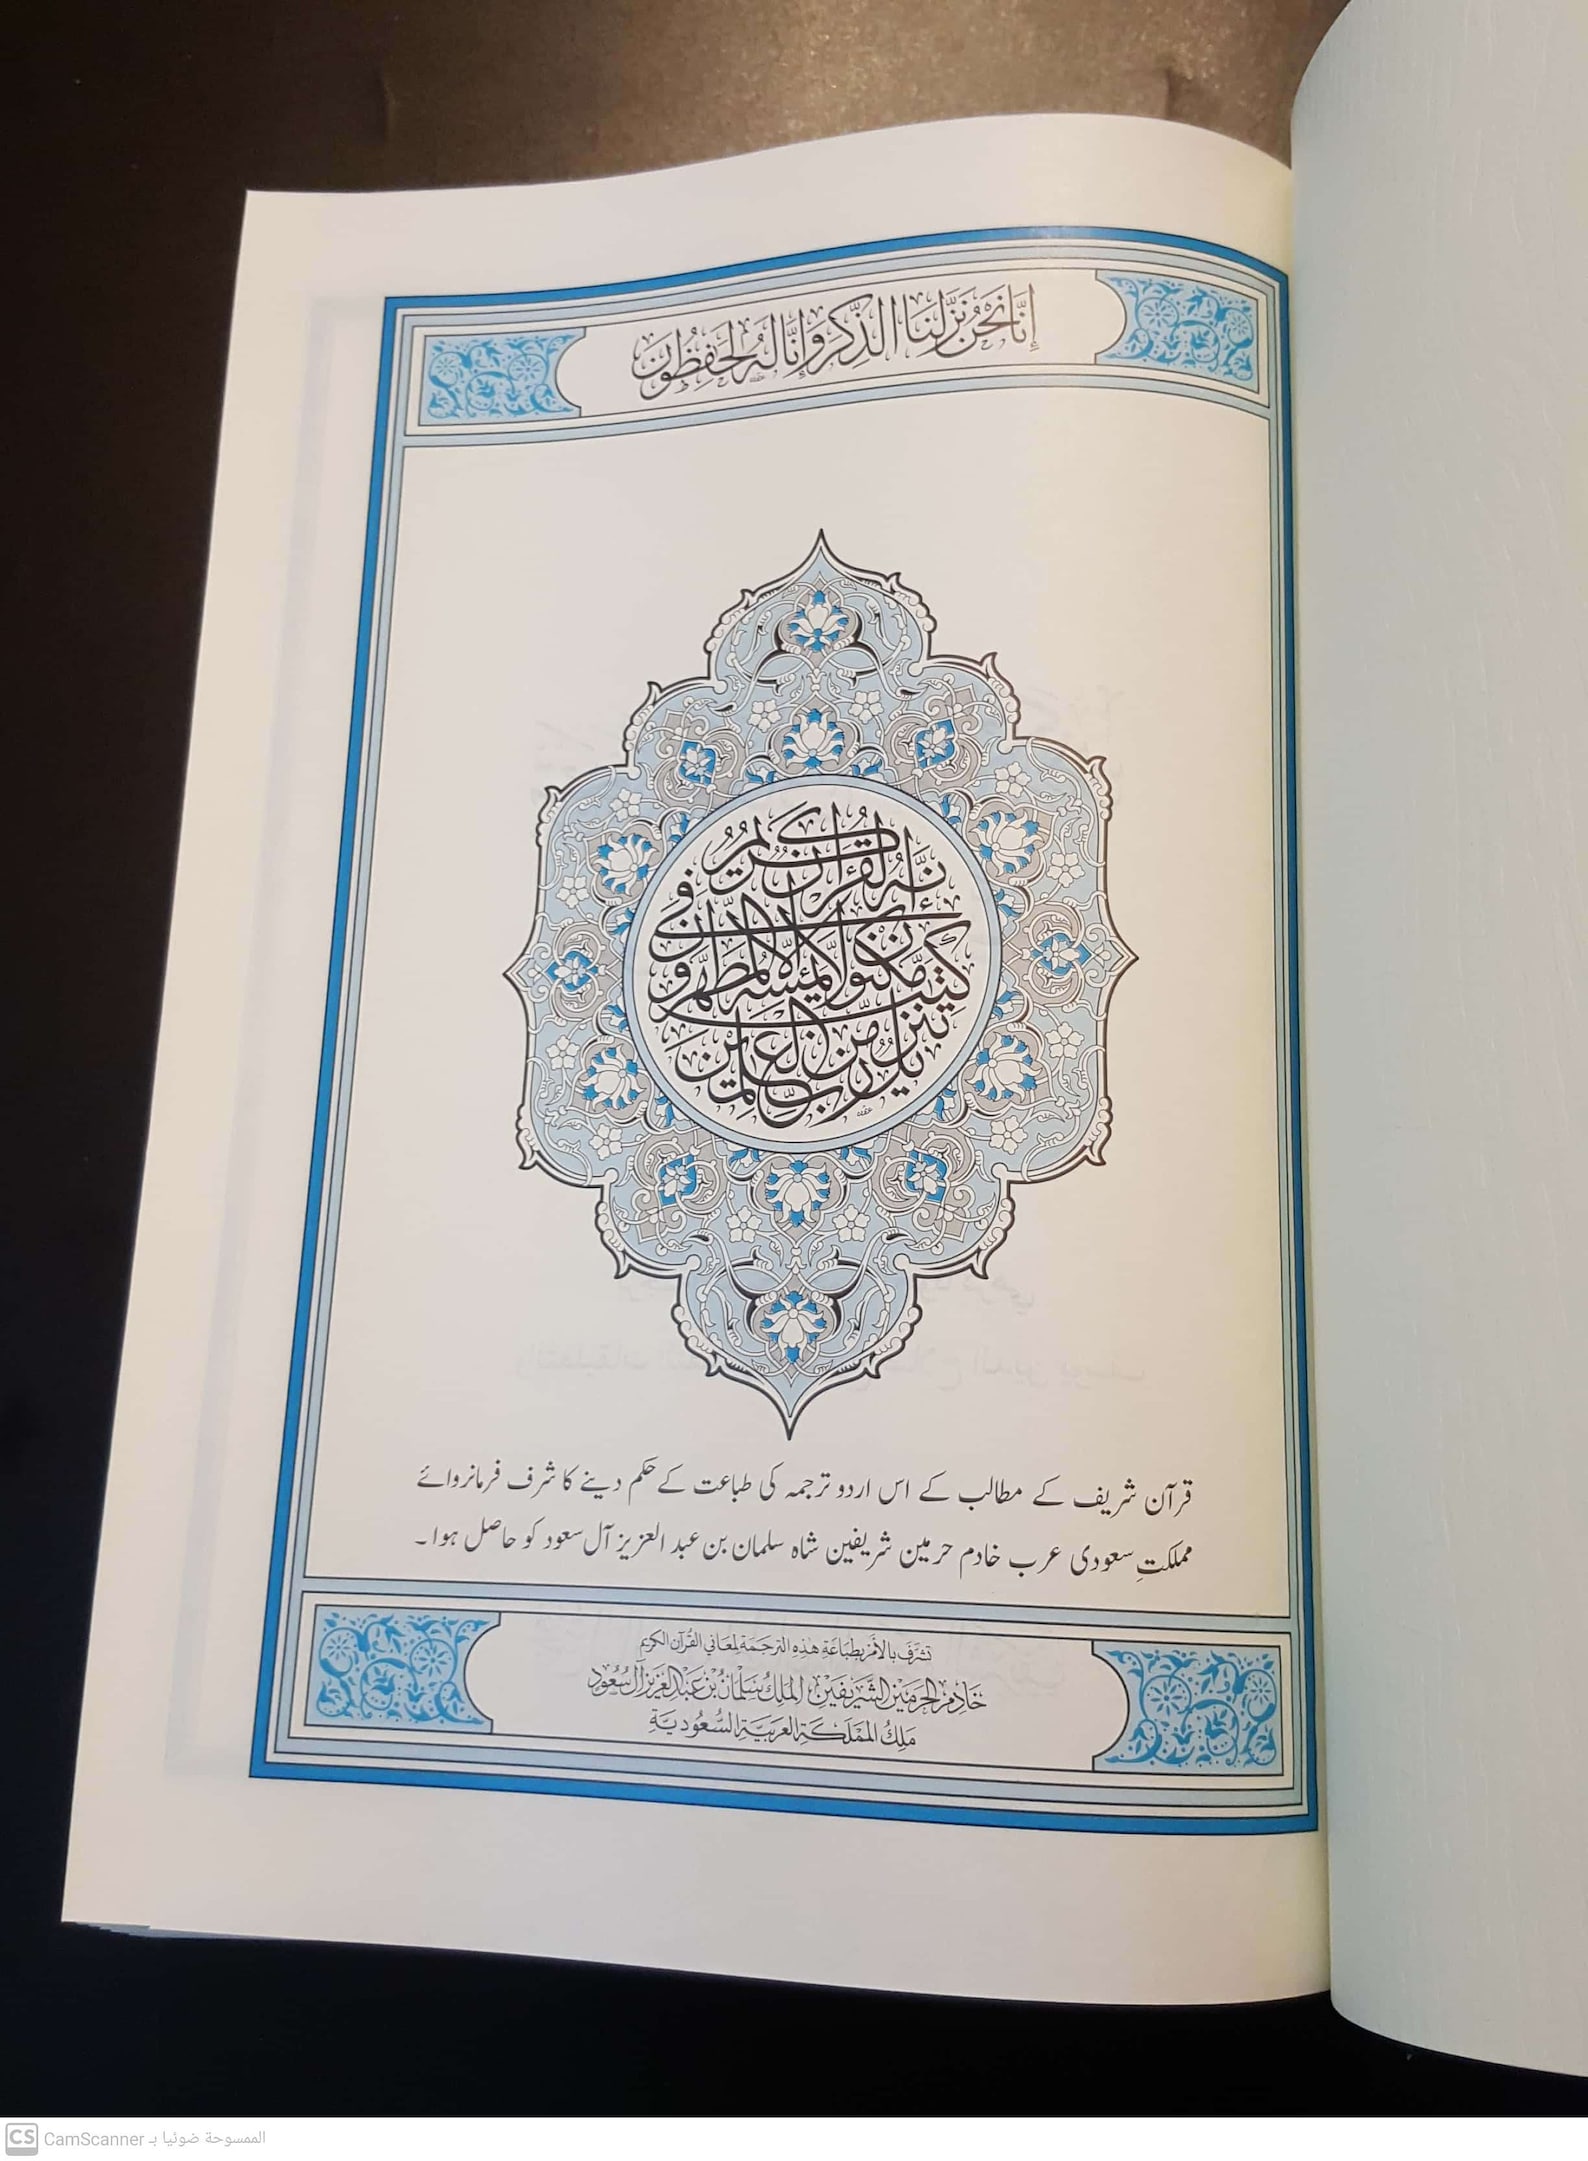 إِنَّا نَحْنُ نَزَّلْنَا الذِّكْرَ وَإِنَّا لَهُ لَحَٰفِظُونَ
إِنَّهُ لَقُرْءَانٌ كَرِيمٌ
فِى كِتَٰبٍ مَّكْنُونٍ لَّا يَمَسُّهُ إِلَّا الْمُطَهَّرُونَ
تَنزِيلٌ مِّن رَّبِّ الْعَٰلَمِينَ
قرآن شریف کے مطالب کے اس اردو ترجمہ کی طباعت کے حکم دینے کا شرف فرمانروائے
مملکتِ سعودی عرب خادم حرمین شریفین شاہ سلمان بن عبد العزیز آل سعود کو حاصل ہوا ۔
تشَرَّفَ بالأمْرِ بطِبَاعَةِ هٰذِهِ الترجَمَة لِمعَاني القُرآن الكريْم
خَادِمُ الحَرَمَيْنِ الشَّرِيفَيْنِ المَلِكُ سَلْمَانُ بْنُ عَبْدِ الْعَزِيزِ آل سُعُود
مَلِكُ المَمْلَكَةِ العَرَبيَّةِ السُّعُوديَّةِ
CS CamScanner الممسوحة ضوئيا بـ